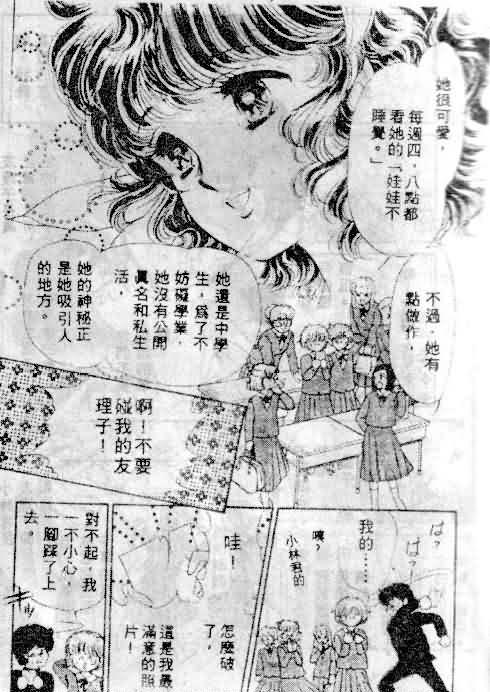 她很可愛，
每週四，八點都
看她的「娃娃不
睡覺。」
不過，她有
點做作，
她還是中學
生，為了不
妨礙學業，
她沒有公開
真名和私生
活，
她的神秘正
是她吸引人
的地方。
啊！不要
碰我的友
理子！
ば？
ば？
我的……
嚷？
小林君的
哇！
怎麼破
了，
這是我最
滿意的照
片！
對不起，我
一不小心，
一腳踩了上
去。
キッ